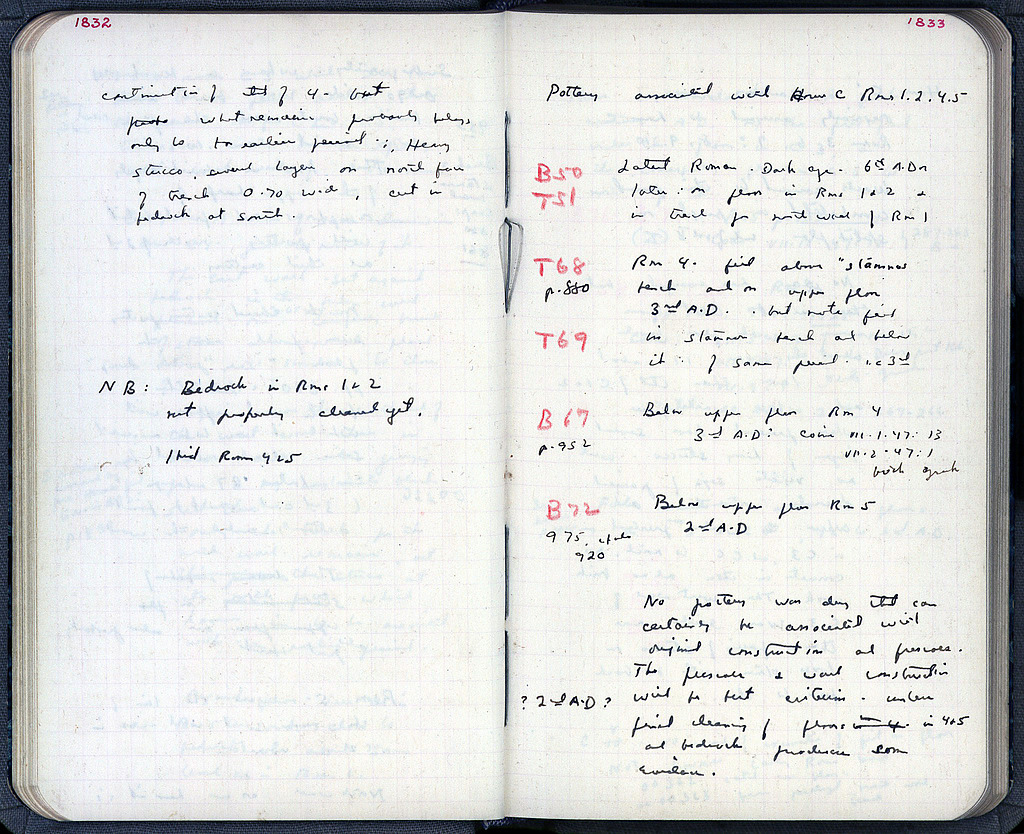 1832
continuation of that of 4. but
what remains probably belongs
only to earlier period ∴ Heavy
stucco layer on north face
of trench 0.70 wide, cut in
bedrock at south.
NB: Bedrock in Rms 1 & 2
not properly cleaned yet.
Rooms 4 & 5
1833
Pottery associated with House C Rms 1.2.4.5
B50 Latest Roman. Dark age. 6th A.D or
T51 later: on floor in Rms 1 & 2 &
in trench for north wall of Rm 1
T68 Rm 4. fill above "stamnos
p.880 trench and on upper floor
3rd A.D. . but note fill
T69 in stamnos trench and below
it of same period. i.e 3rd
B67 Below upper floor Rm 4
p.952 3rd A.D: coins III.1.47: 13
VII.2.47:1
both
B72 Below upper floor Rm 5
975. 2nd A.D
920
No pottery was dug that can
certainly be associated with
original construction and frescoes.
The frescoes & wall construction
? 2nd A.D ? will be best criterion. unless
final cleaning of floors in 4 & 5
and bedrock produces some
evidence.